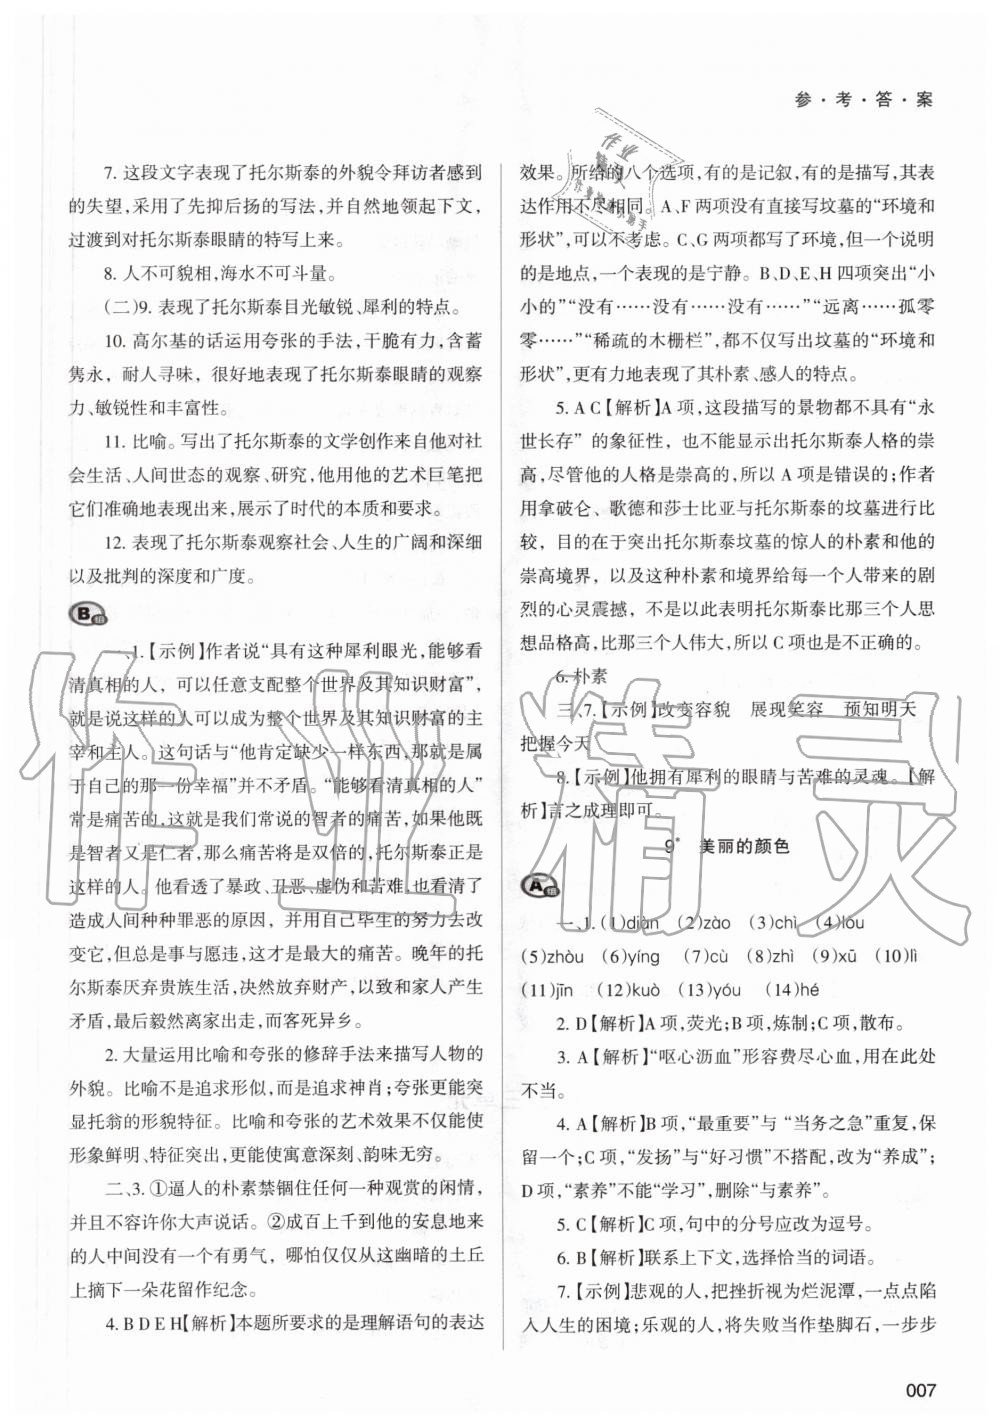 参·考·答·案
7. 这段文字表现了托尔斯泰的外貌令拜访者感到
的失望,采用了先抑后扬的写法,并自然地领起下文,
过渡到对托尔斯泰眼睛的特写上来。
8. 人不可貌相,海水不可斗量。
(二)9. 表现了托尔斯泰目光敏锐、犀利的特点。
10. 高尔基的话运用夸张的手法,干脆有力,含蓄
隽永，耐人寻味，很好地表现了托尔斯泰眼睛的观察
力、敏锐性和丰富性。
11. 比喻。写出了托尔斯泰的文学创作来自他对社
会生活、人间世态的观察、研究,他用他的艺术巨笔把
它们准确地表现出来,展示了时代的本质和要求。
12. 表现了托尔斯泰观察社会、人生的广阔和深细
以及批判的深度和广度。
B组
一、1.【示例】作者说“具有这种犀利眼光,能够看
清真相的人，可以任意支配整个世界及其知识财富”,
就是说这样的人可以成为整个世界及其知识财富的主
宰和主人。这句话与“他肯定缺少一样东西,那就是属
于自己的那一份幸福”并不矛盾。“能够看清真相的人”
常是痛苦的,这就是我们常说的智者的痛苦,如果他既
是智者又是仁者,那么痛苦将是双倍的,托尔斯泰正是
这样的人。他看透了暴政、丑恶、虚伪和苦难,也看清了
造成人间种种罪恶的原因，并用自己毕生的努力去改
变它,但总是事与愿违,这才是最大的痛苦。晚年的托
尔斯泰厌弃贵族生活,决然放弃财产,以致和家人产生
矛盾,最后毅然离家出走,而客死异乡。
2. 大量运用比喻和夸张的修辞手法来描写人物的
外貌。比喻不是追求形似,而是追求神肖;夸张更能突
显托翁的形貌特征。比喻和夸张的艺术效果不仅能使
形象鲜明、特征突出,更能使寓意深刻、韵味无穷。
二、3. ①逼人的朴素禁锢住任何一种观赏的闲情,
并且不容许你大声说话。②成百上千到他的安息地来
的人中间没有一个有勇气，哪怕仅仅从这幽暗的土丘
上摘下一朵花留作纪念。
4. B D E H【解析】本题所要求的是理解语句的表达
效果。所给的八个选项,有的是记叙,有的是描写,其表
达作用不尽相同。A、F 两项没有直接写坟墓的“环境和
形状”,可以不考虑。C、G 两项都写了环境,但一个说明
的是地点,一个表现的是宁静。B、D、E、H 四项突出“小
小的”“没有……没有……没有……”“远离……孤零
零……”“稀疏的木栅栏”,都不仅写出坟墓的“环境和
形状”,更有力地表现了其朴素、感人的特点。
5. A C【解析】A 项,这段描写的景物都不具有“永
世长存”的象征性，也不能显示出托尔斯泰人格的崇
高,尽管他的人格是崇高的,所以 A 项是错误的;作者
用拿破仑、歌德和莎士比亚与托尔斯泰的坟墓进行
比较，目的在于突出托尔斯泰坟墓的惊人的朴素和他的
崇高境界，以及这种朴素和境界给每一个人带来的剧
烈的心灵震撼，不是以此表明托尔斯泰比那三个人思
想品格高,比那三个人伟大,所以 C 项是不正确的。
6. 朴素
三、7.【示例】改变容貌 展现笑容 预知明天
把握今天
8.【示例】他拥有犀利的眼睛与苦难的灵魂。【解
析】言之成理即可。
9* 美丽的颜色
A组
一、1. (1)diàn (2)zào (3)chì (4)lòu
(5)zhòu (6)yíng (7)cù (8)zhì (9)xū (10)lì
(11)jīn (12)kuò (13)yóu (14)hé
2. D【解析】A 项,荧光;B 项,炼制;C 项,散布。
3. A【解析】“呕心沥血”形容费尽心血,用在此处
不当。
4. A【解析】B 项,“最重要”与“当务之急”重复,保
留一个;C 项,“发扬”与“好习惯”不搭配,改为“养成”;
D 项,“素养”不能“学习”,删除“与素养”。
5. C【解析】C 项,句中的分号应改为逗号。
6. B【解析】联系上下文,选择恰当的词语。
7.【示例】悲观的人,把挫折视为烂泥潭,一点点陷
入人生的困境;乐观的人,将失败当作垫脚石,一步步
007
作业精灵